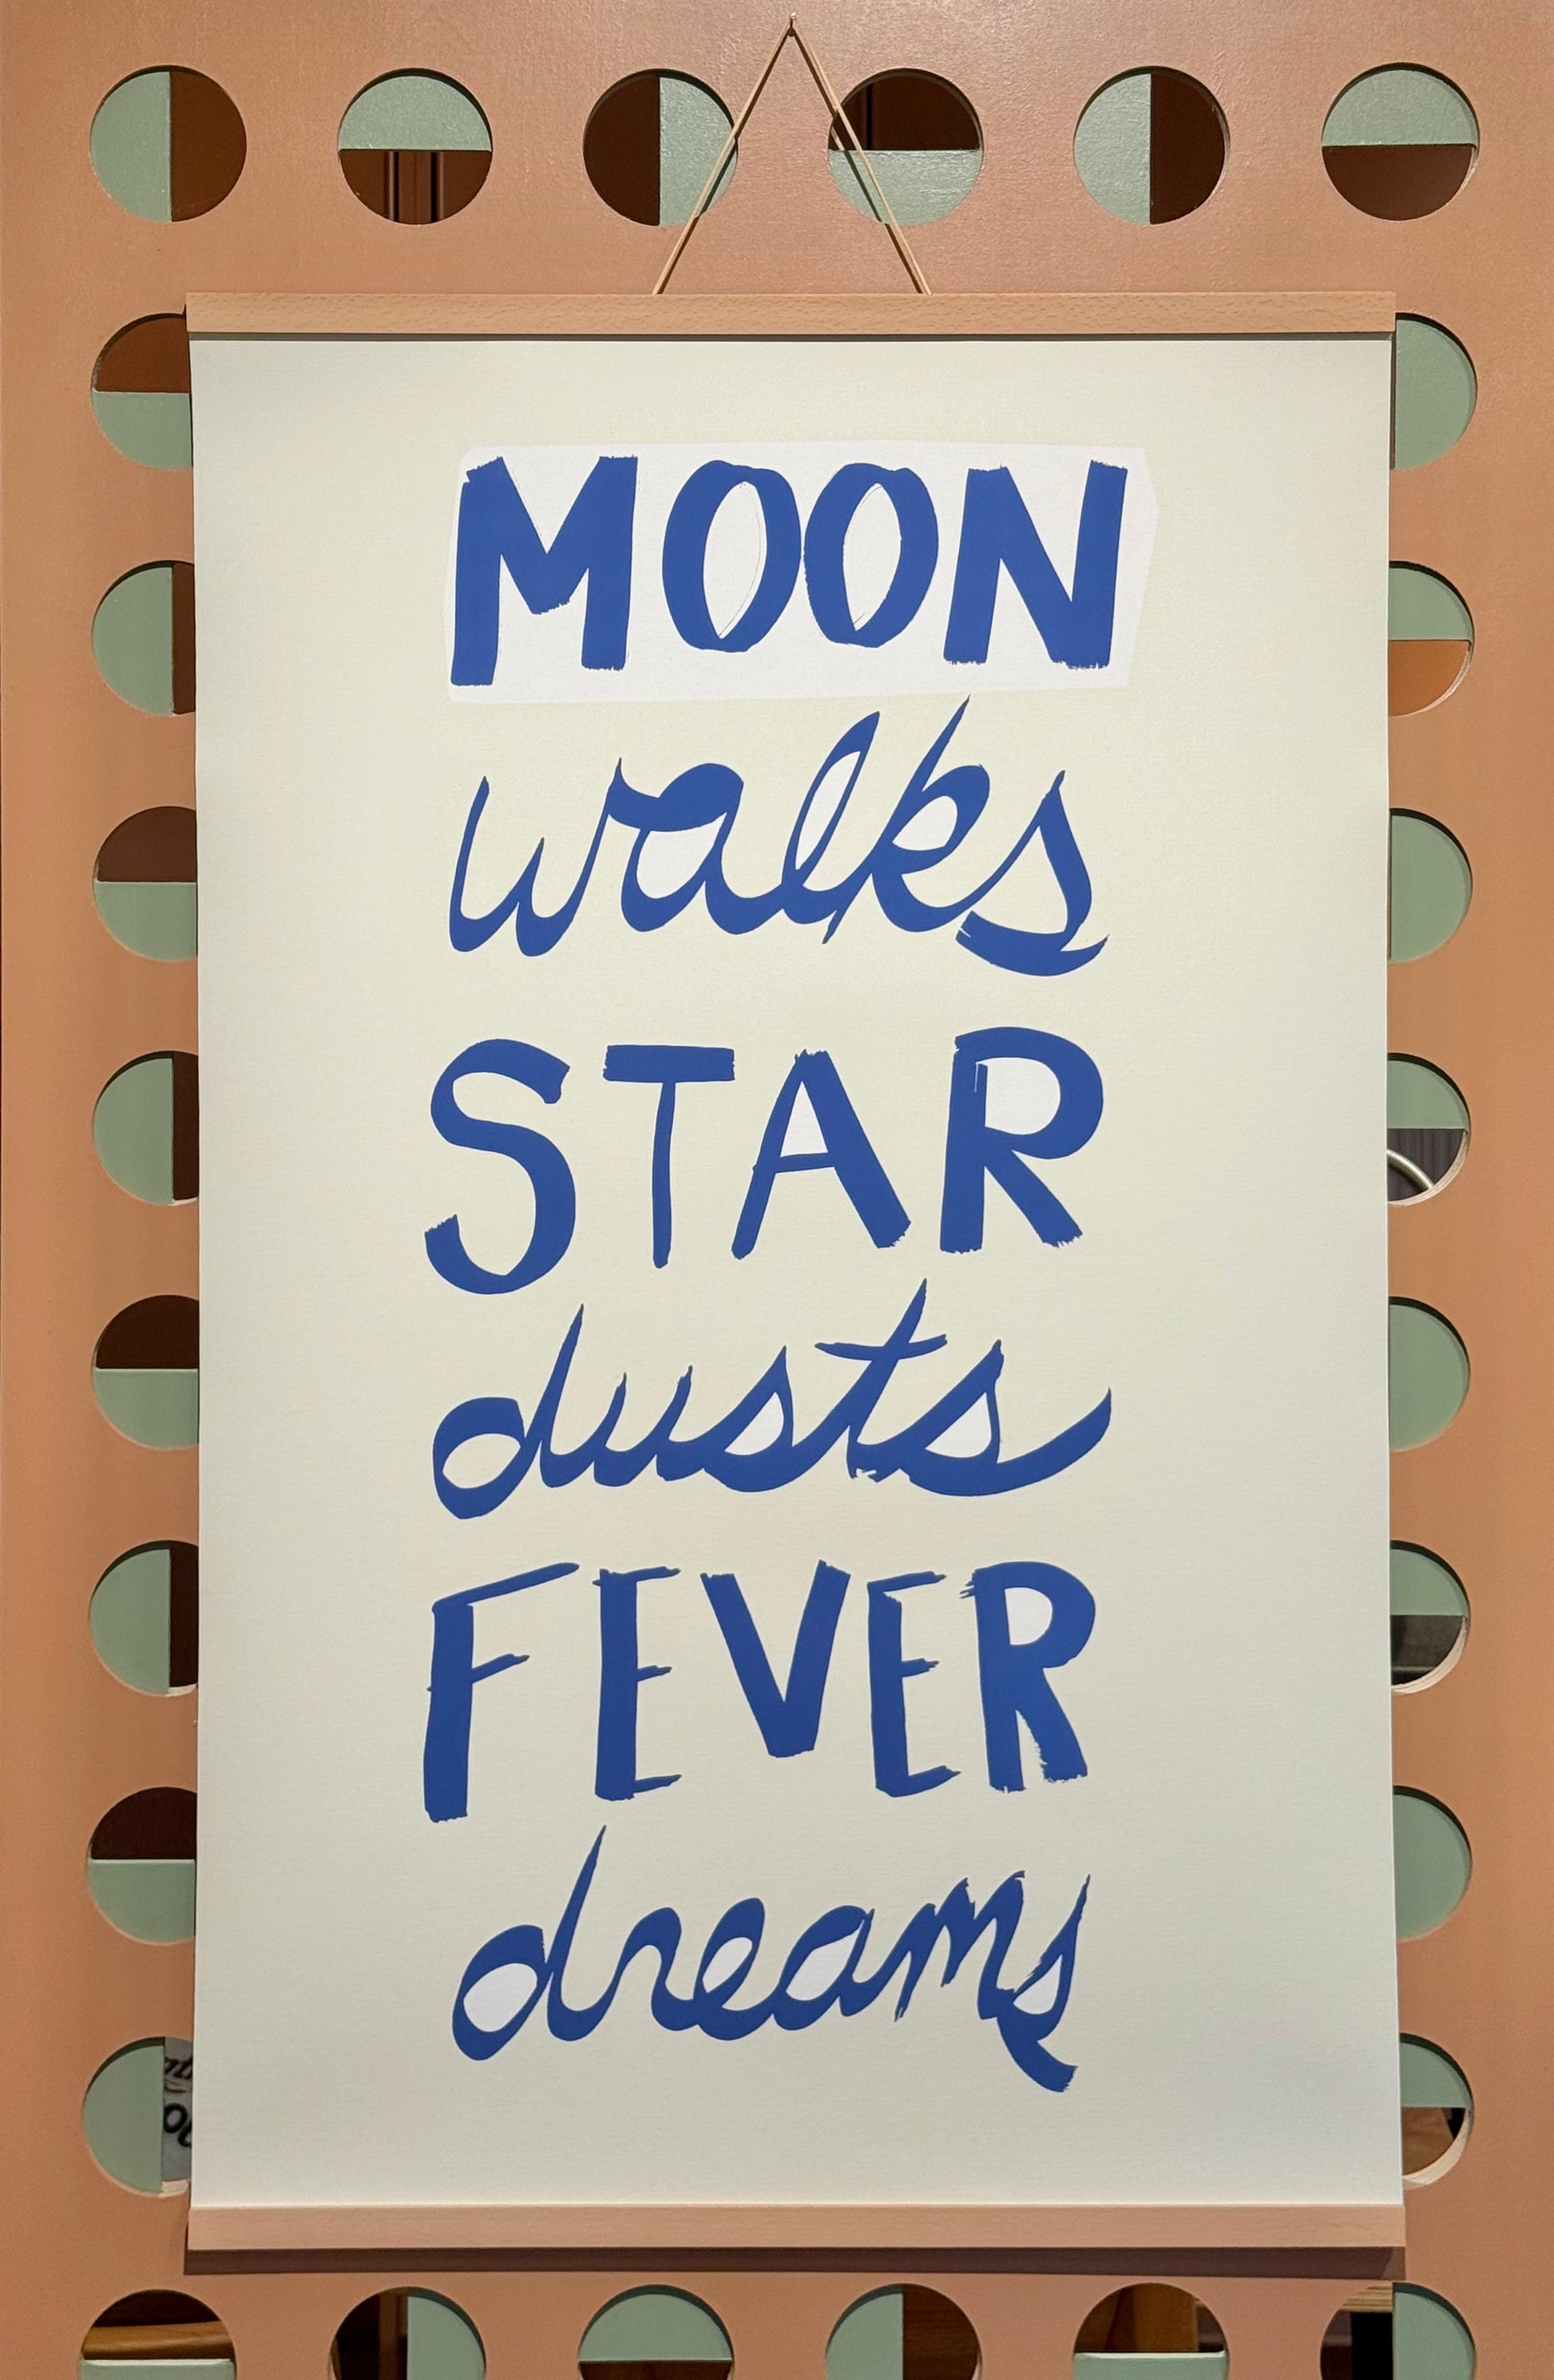 MOON
walks
STAR
dusts
FEVER
dreams